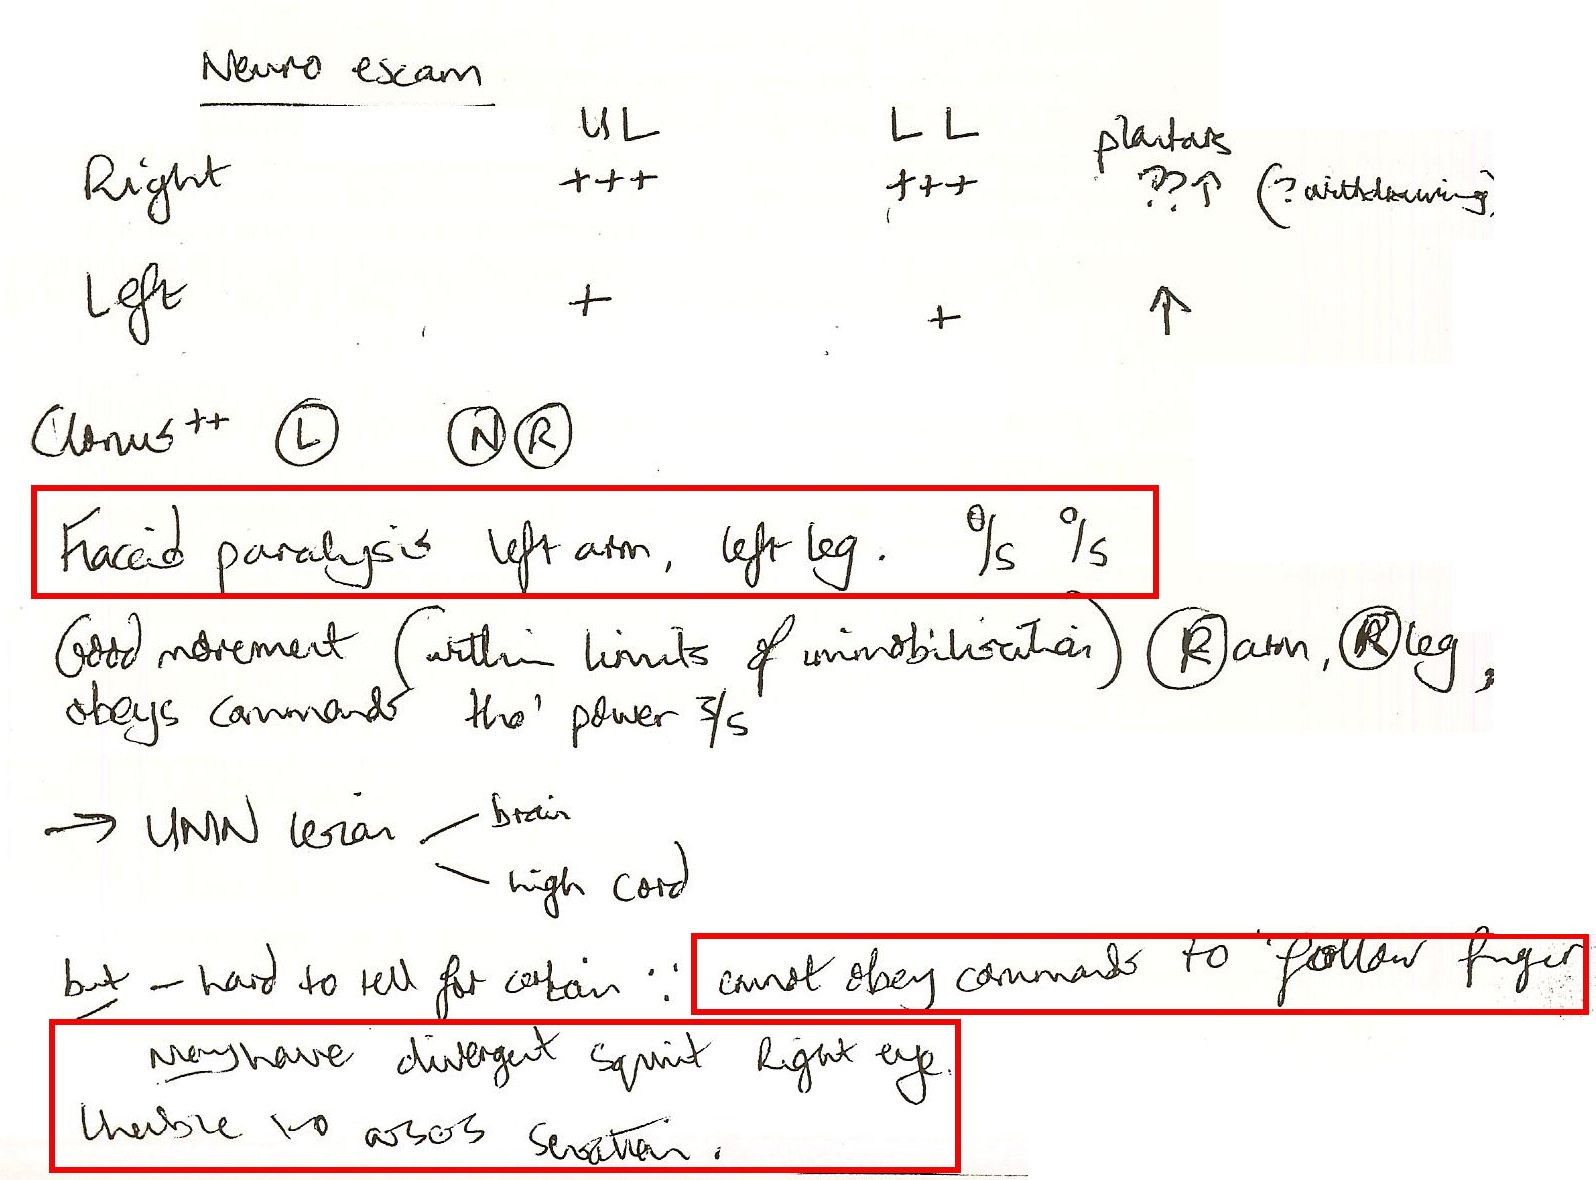 Neuro exam
UL LL plantars
Right +++ +++ ??↑ (?withdrawing)
Left + + ↑
Clonus ++ (L) (N) (R)
Flaccid paralysis left arm, left leg. 0/5 0/5
Good movement (within limits of immobilisation) (R) arm, (R) leg,
obeys commands tho' power 3/5
→ UMN lesion brain
high cord
but - hard to tell for certain ∵ cannot obey commands to 'follow finger
May have divergent squint Right eye.
Unable to assess sensation.